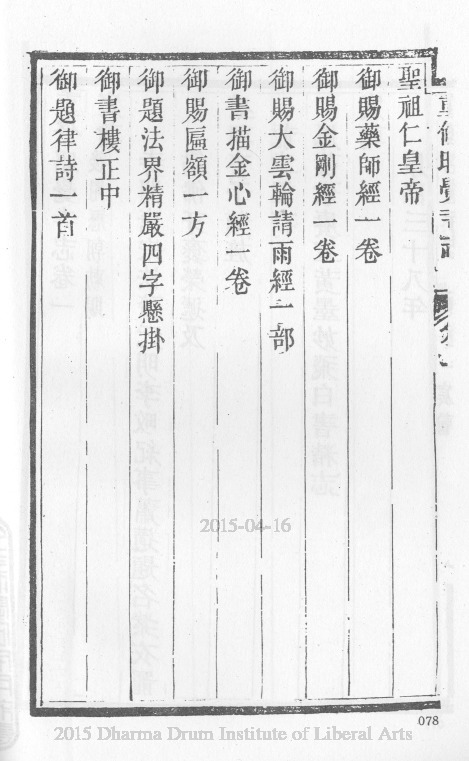 聖祖仁皇帝
御賜藥師經一卷
御賜金剛經一卷
御賜大雲輪請雨經一部
御書描金心經一卷
御賜匾額一方
御題法界精嚴四字懸掛
御書樓正中
御題律詩一首
2015-04-16
078
2015 Dharma Drum Institute of Liberal Arts